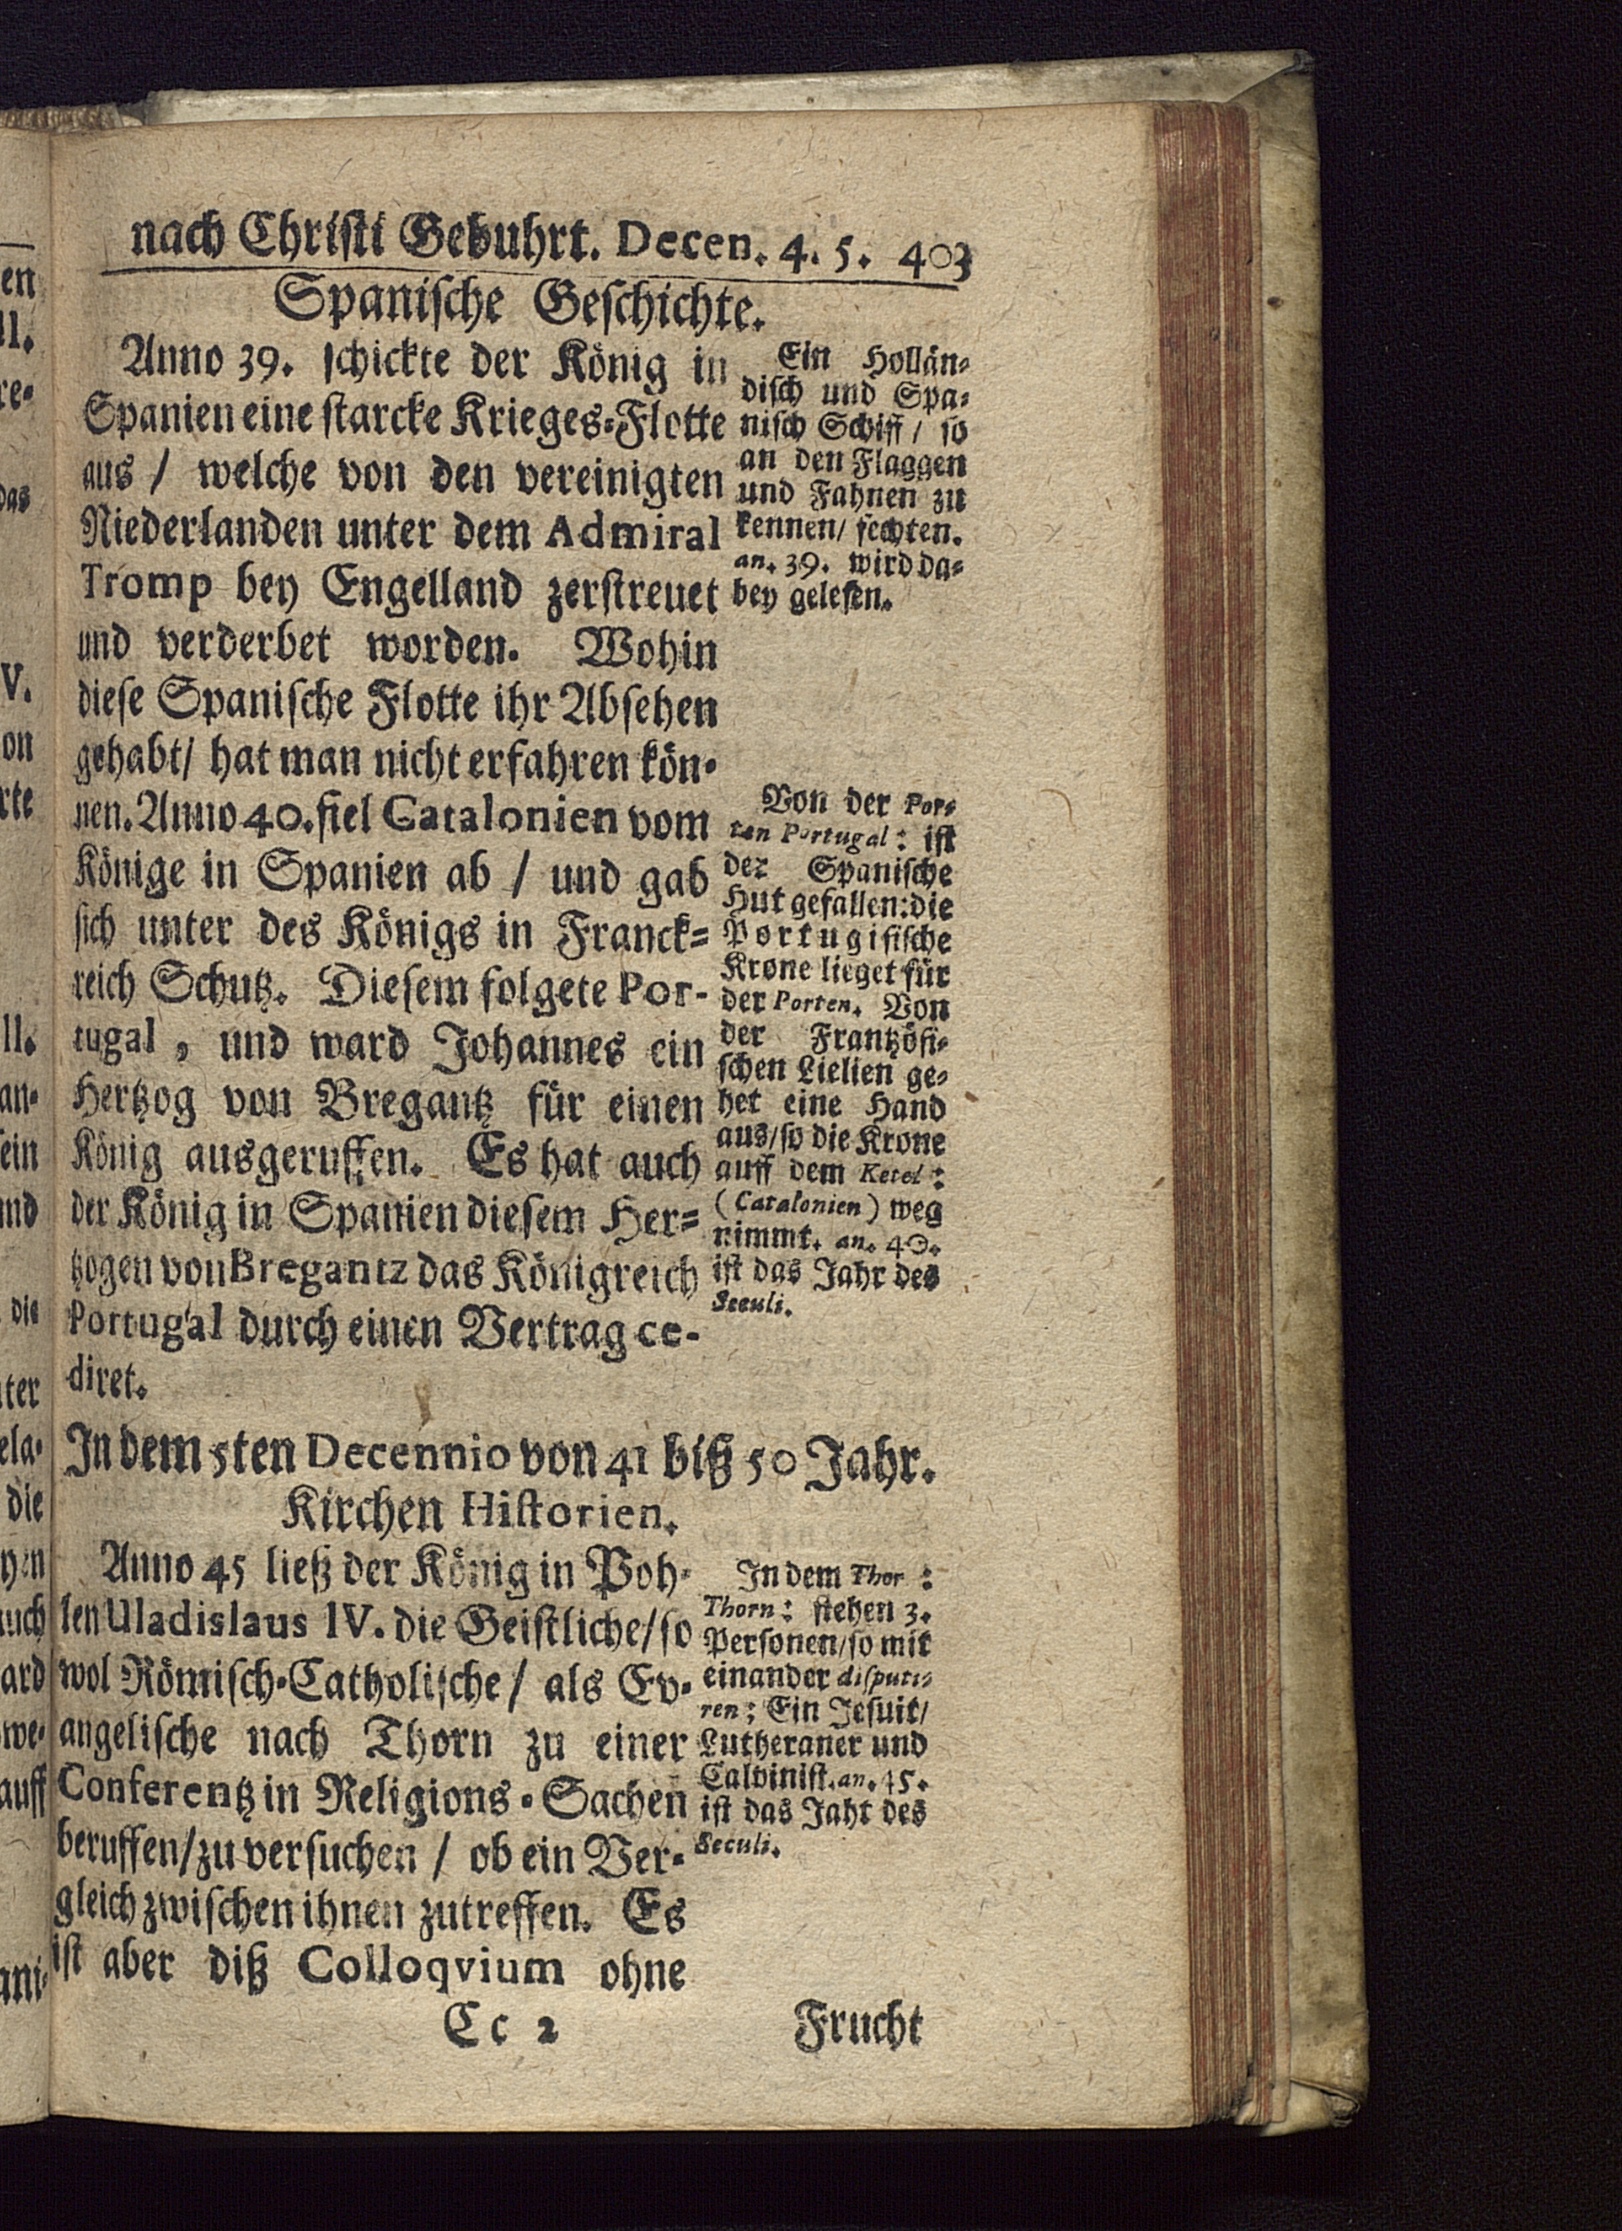 nach Christi Gebuhrt. Decen. 4. 5. 403
Spanische Geschichte.
Anno 39. schickte der König in
Spanien eine starcke Krieges-Flotte
aus / welche von den vereinigten
Niederlanden unter dem Admiral
Tromp bey Engelland zerstreuet
und verderbet worden. Wohin
diese Spanische Flotte ihr Absehen
gehabt/ hat man nicht erfahren kön-
nen. Anno 40. fiel Catalonien vom
Könige in Spanien ab / und gab
sich unter des Königs in Franck-
reich Schutz. Diesem folgete Por-
tugal, und ward Johannes ein
Hertzog von Bregantz für einen
König ausgeruffen. Es hat auch
der König in Spanien diesem Her-
tzogen von Bregantz das Königreich
Portugal durch einen Vertrag ce-
diret.
Ein Hollän-
disch und Spa-
nisch Schiff / so
an den Flaggen
und Fahnen zu
kennen/ fechten.
an. 39. wird da-
bey gelesen.
Von der Por-
ten Portugal: ist
der Spanische
Hut gefallen: die
Portugisische
Krone lieget für
der Porten. Von
der Frantzösi-
schen Lielien ge-
het eine Hand
aus/ so die Krone
auff dem Ketel:
(Catalonien) weg
nimmt. an. 40.
ist das Jahr des
Seculi.
In dem 5ten Decennio von 41 biß 50 Jahr.
Kirchen Historien.
Anno 45 ließ der König in Poh-
len Uladislaus IV. die Geistliche/ so
wol Römisch-Catholische / als Ev-
angelische nach Thorn zu einer
Conferentz in Religions-Sachen
beruffen/ zu versuchen / ob ein Ver-
gleich zwischen ihnen zutreffen. Es
ist aber diß Colloqvium ohne
In dem Thor:
Thorn: stehen 3.
Personen/ so mit
einander disputi-
ren: Ein Jesuit/
Lutheraner und
Calvinist. an. 45.
ist das Jaht des
Seculi.
Cc 2 Frucht